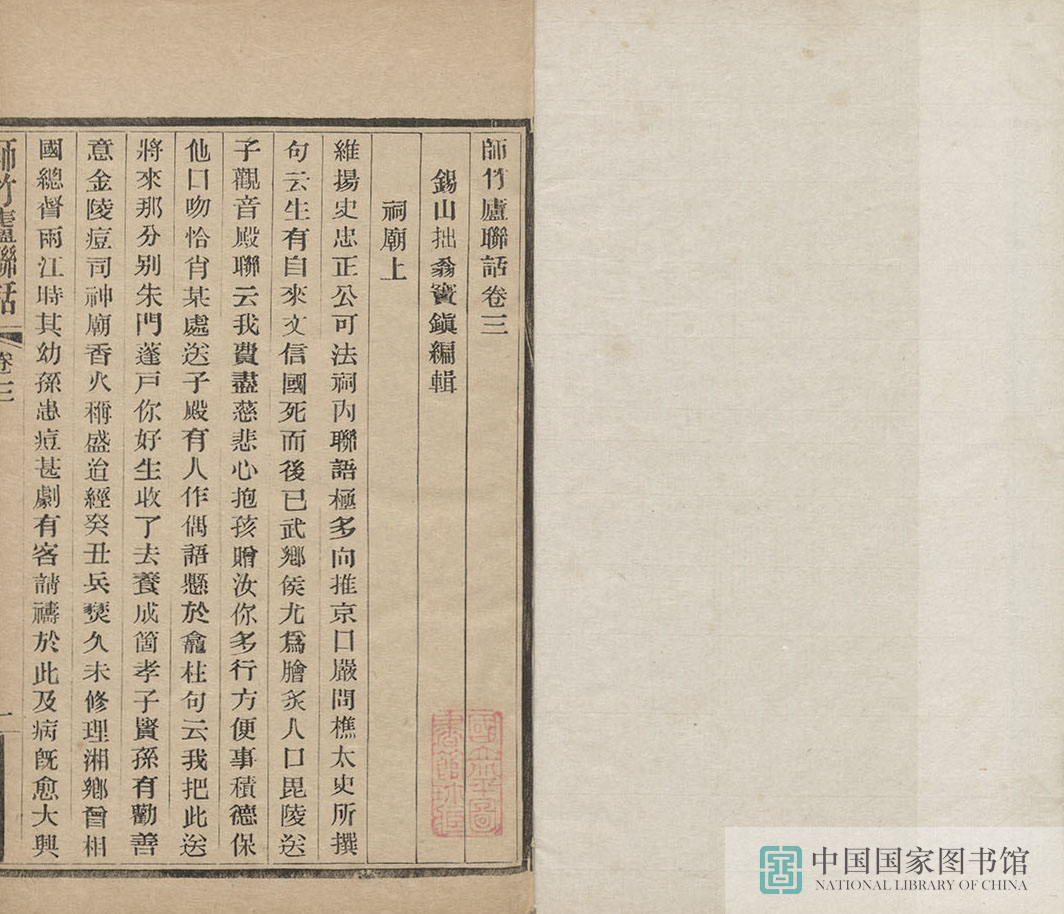 師竹廬聯話卷三
錫山拙翁竇鎮編輯
祠廟上
維揚史忠正公可法祠內聯語極多向推京口嚴問樵太史所撰
句云生有自來文信國死而後已武鄉侯尤爲膾炙人口毘陵送
子觀音殿聯云我費盡慈悲心抱孩贈汝你多行方便事積德保
他口吻恰肖某處送子殿有人作偶語懸於龕柱句云我把此送
將來那分别朱門蓬戸你好生收了去養成箇孝子賢孫有勸善
意金陵痘司神廟香火稱盛迨經癸丑兵燹久未修理湘鄉曾相
國總督兩江時其幼孫患痘甚劇有客請禱於此及病旣愈大興
師竹廬聯話
卷三
一
國立北平圖
書館珍藏
中国国家图书馆
NATIONAL LIBRARY OF CHINA